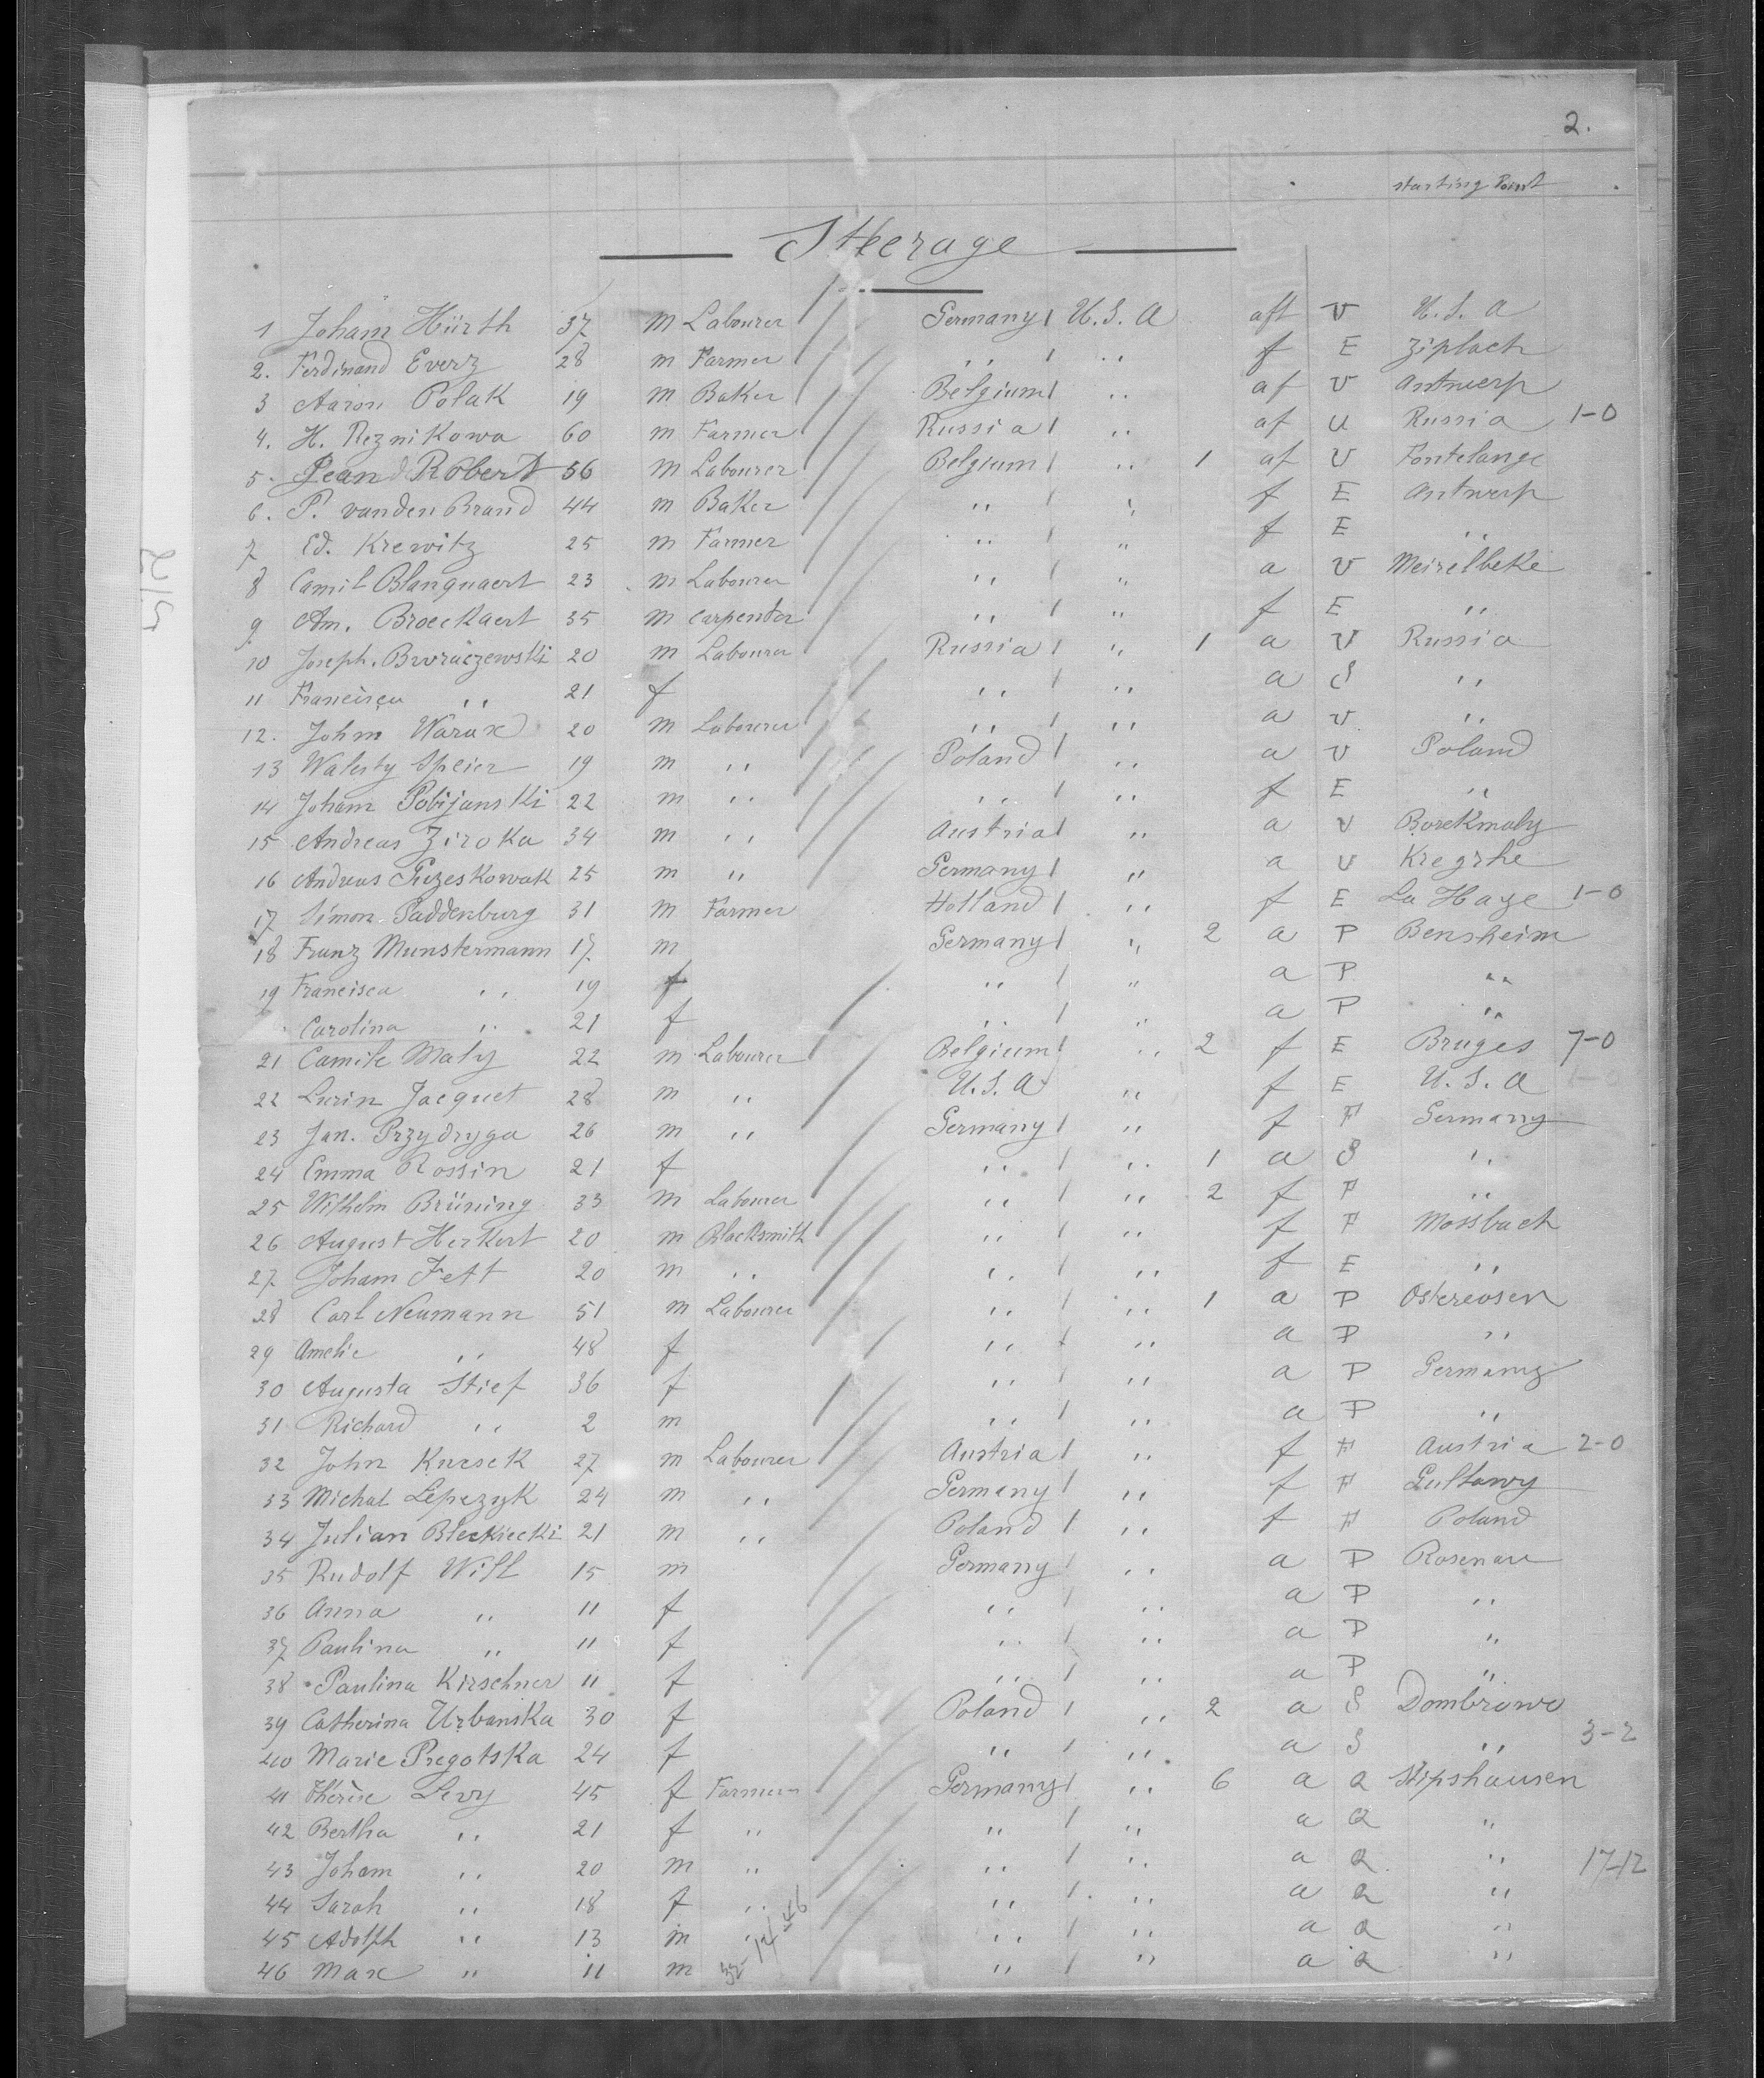 2.
starting Point
Steerage
1 Joham Hürth 37 m Labourer Germany U.S.A aft U U.S.A
2. Ferdinand Everz 28 m Farmer ,, ,, f E Ziplach
3 Aaron Polak 19 m Baker Belgium ,, af U Antwerp
4. H. Reznikowa 60 m Farmer Russia ,, af U Russia 1-0
5. Jean Robert 56 m Labourer Belgium ,, 1 af U Fontelange
6. P. vanden Brand 44 m Baker ,, ,, f E Antwerp
7 Ed. Krewitz 25 m Farmer ,, ,, f E ,,
8 Camil Blanquaert 23 m Labourer ,, ,, a U Meirelbeke
9. Am. Broeckaert 35 m Carpenter ,, ,, f E ,,
10 Joseph. 20 m Labourer Russia ,, 1 a U Russia
11 Francisca ,, 21 f ,, ,, a S ,,
12. Johm Warax 20 m Labourer ,, ,, a U ,,
13 Walesty Speier 19 m ,, Poland ,, a U Poland
14 Joham Pobijanski 22 m ,, ,, ,, f E ,,
15 Andreas Ziroka 34 m ,, Austria ,, a U Borekmaly
16 Andreas 25 m ,, Germany ,, a U Kregrhe
17 Simon Paddenburg 31 m Farmer Holland ,, f E La Haye 1-0
18 Franz Munstermann 17 m Germany ,, 2 a P Bensheim
19 Francisca ,, 19 f ,, ,, a P ,,
Carolina ,, 21 f ,, ,, a P ,,
21 Camile Maly 22 m Labourer Belgium ,, 2 f E Bruges 7-0
22 Lucin Jacquet 28 m ,, U.S.A ,, f E U.S.A
23 Jan. Przydryga 26 m ,, Germany ,, f F Germany
24 Emma Rossin 21 f ,, ,, 1 a S ,,
25 Wilhelm Brüning 33 m Labourer ,, ,, 2 f F ,,
26 August Herkert 20 m Blacksmith ,, ,, f F Mossbach
27 Joham Fett 20 m ,, ,, ,, f E ,,
28 Carl Neumann 51 m Labourer ,, ,, 1 a P Ostereosen
29 Amelie ,, 48 f ,, ,, a P ,,
30 Augusta Stief 36 f ,, ,, a P Germany
31 Richard ,, 2 m ,, ,, a P ,,
32 John Kursek 27 m Labourer Austria ,, f F Austria 2-0
33 Michal Lepczyk 24 m ,, Germany ,, f F Gultowy
34 Julian Bleckiecki 21 m ,, Poland ,, f F Poland
35 Rudolf Will 15 m Germany ,, a P Rosenau
36 Anna ,, 11 f ,, ,, a P ,,
37 Paulina ,, 11 f ,, ,, a P ,,
38 Paulina Kirschner 11 f ,, ,, a P ,,
39 Catherina Urbanska 30 f Poland ,, 2 a S Dombrowo
40 Marie Pregotska 24 f ,, ,, a S ,, 3-2
41 Therèse Levy 45 f Farmer Germany ,, 6 a Q Stipshausen
42 Bertha ,, 21 f ,, ,, ,, a Q ,,
43 Joham ,, 20 m ,, ,, ,, a Q ,, 17-12
44 Sarah ,, 18 f ,, ,, ,, a Q ,,
45 Adolph ,, 13 m ,, ,, ,, a Q ,,
46 Max ,, 11 m ,, ,, a Q ,,
32-14=46